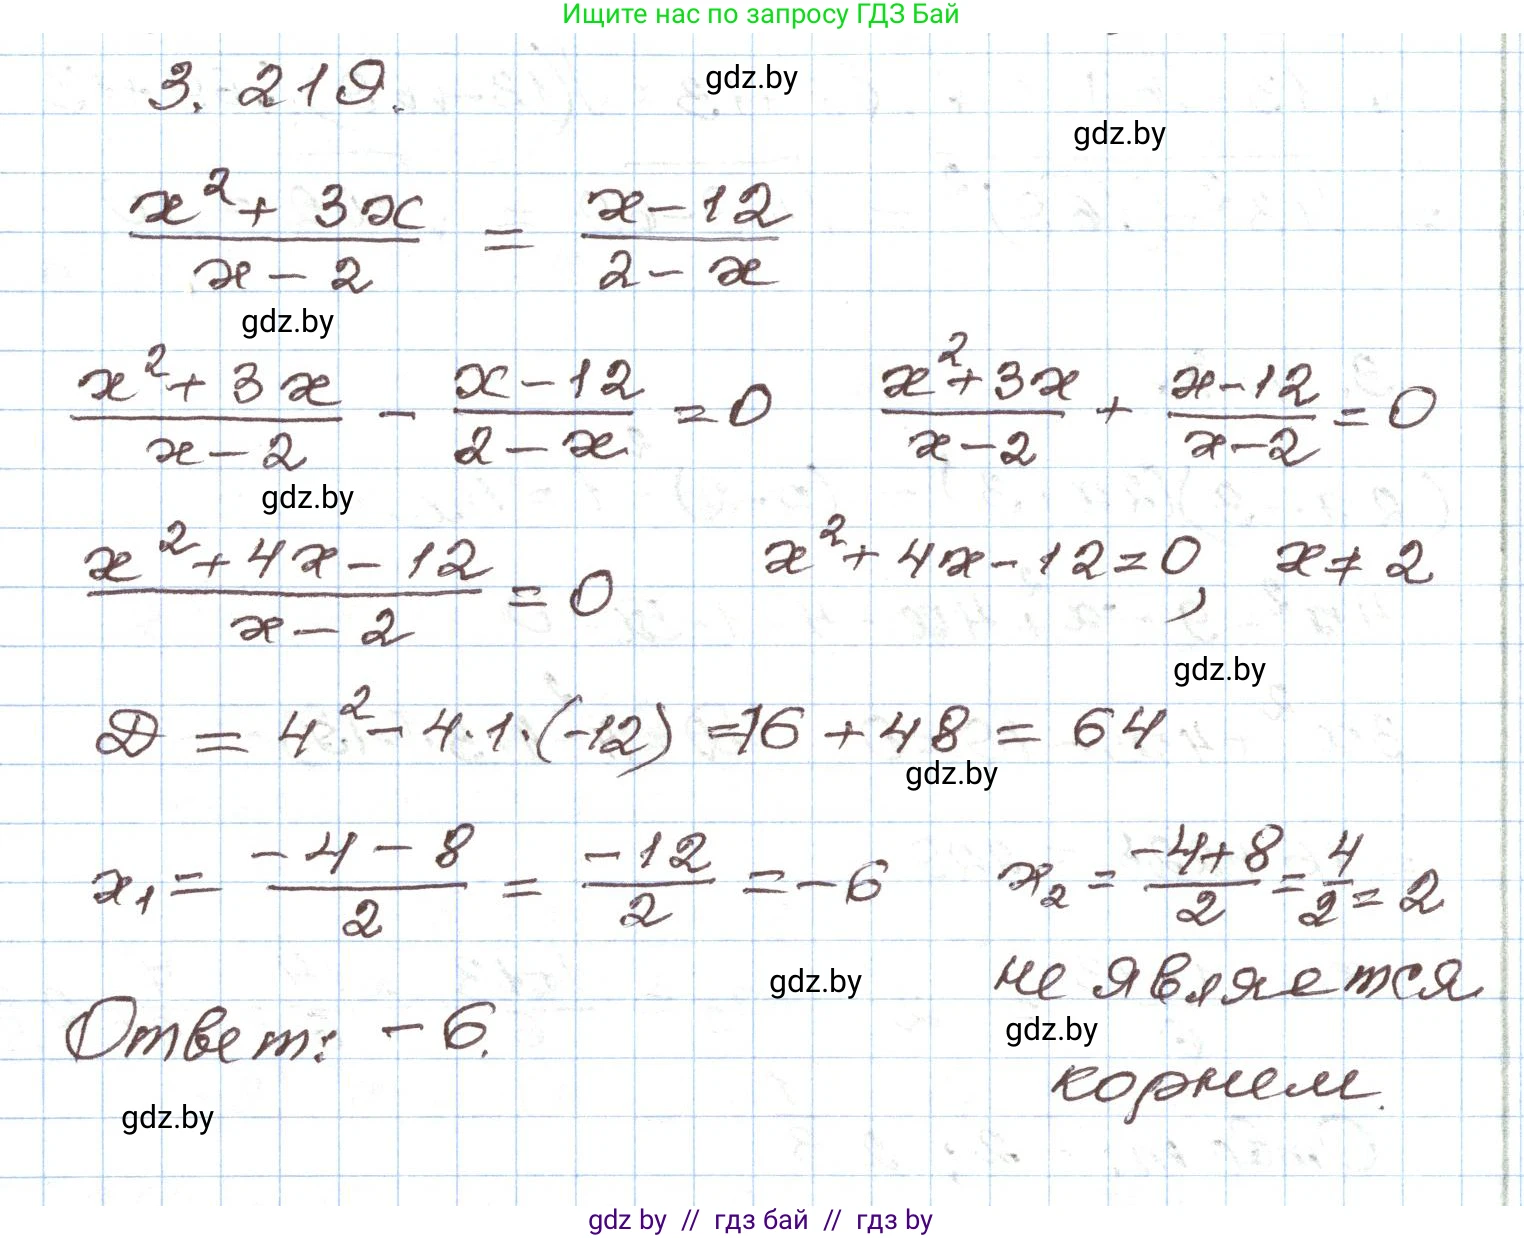 Ищите нас по запросу ГДЗ Бай
3. 219.
gdz.by
gdz.by
(x² + 3x)/(x - 2) = (x - 12)/(2 - x)
gdz.by
(x² + 3x)/(x - 2) - (x - 12)/(2 - x) = 0 (x² + 3x)/(x - 2) + (x - 12)/(x - 2) = 0
gdz.by
(x² + 4x - 12)/(x - 2) = 0 x² + 4x - 12 = 0, x ≠ 2
gdz.by
D = 4² - 4·1·(-12) = 16 + 48 = 64
gdz.by
x₁ = (-4 - 8)/2 = -12/2 = -6 x₂ = (-4 + 8)/2 = 4/2 = 2
gdz.by
не является
Ответ: -6.
gdz.by
корнем.
gdz.by
gdz by // гдз бай // гдз by